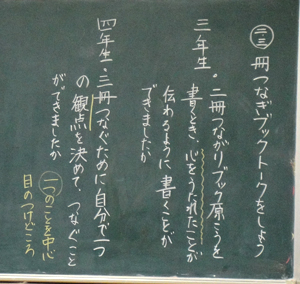 二・三 冊つなぎブックトークをしよう
三年生。二冊つながりブック原こうを
書くとき、心をうたれたことが
伝わるように書くことが
できましたか
四年生・三冊つなぐために自分で一つ
の観点を決めて、つなぐこと
ができましたか
一つのことを中心
目のつけどころ